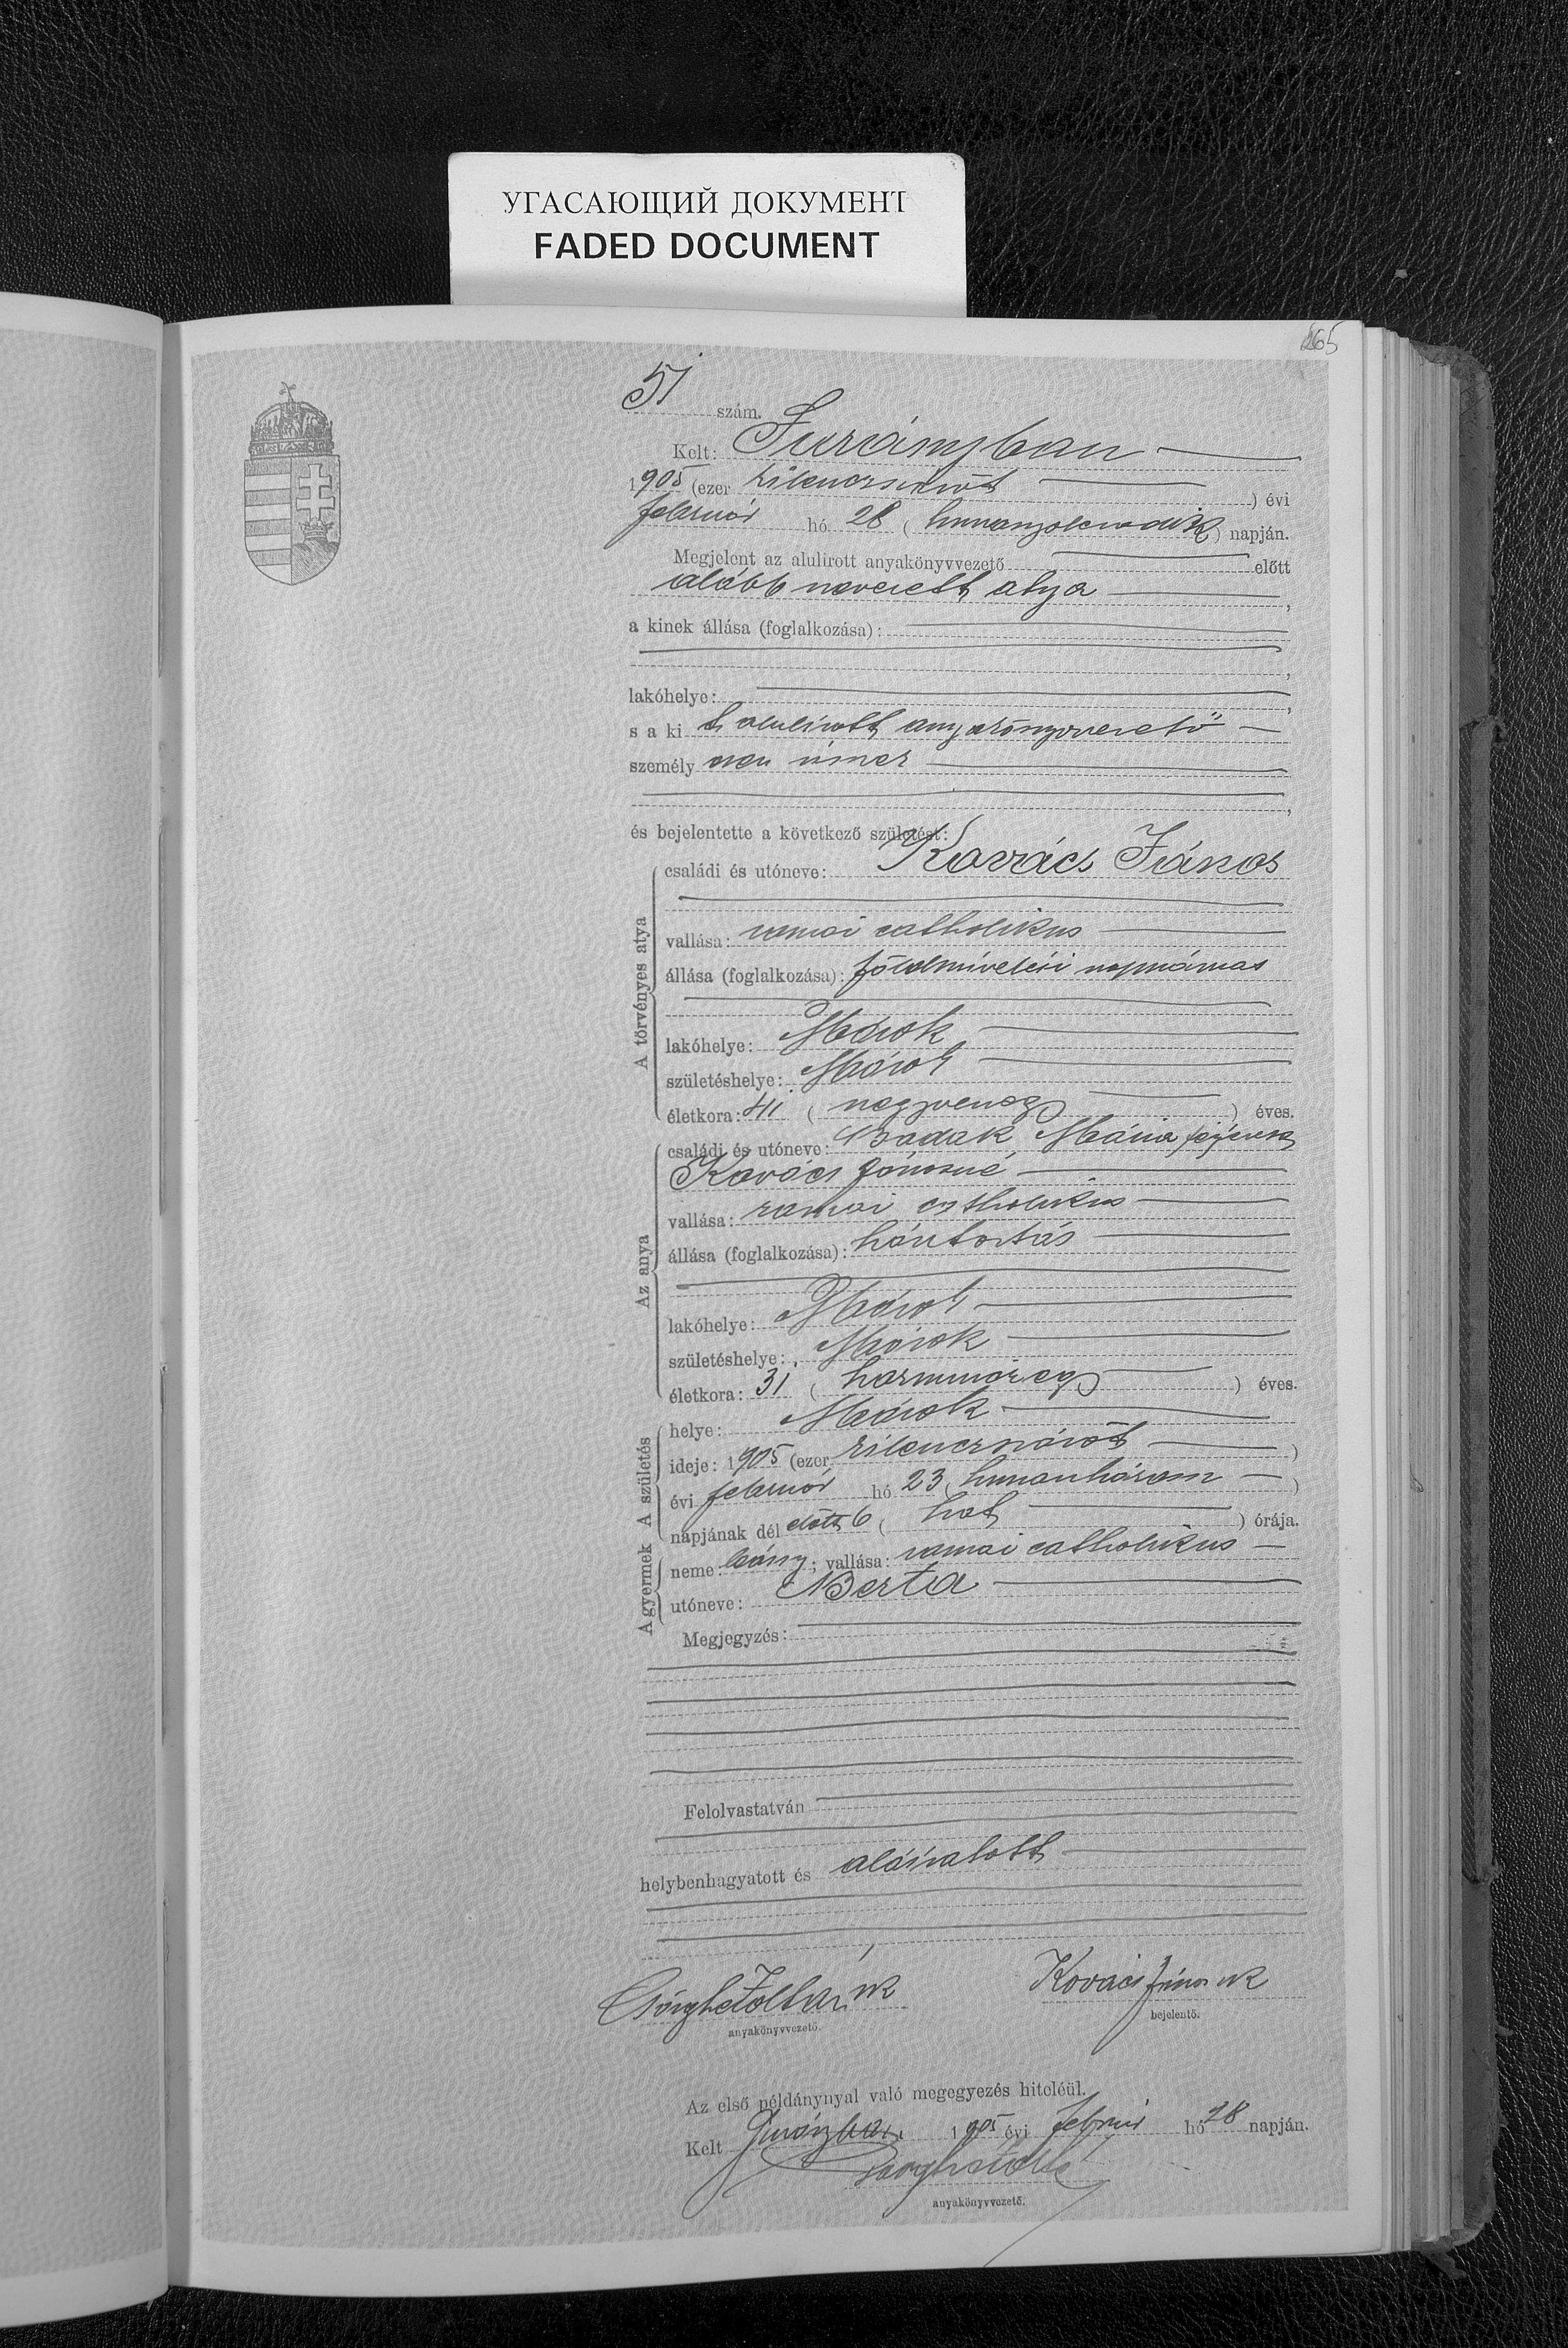 УГАСАЮЩИЙ ДОКУМЕНТ
FADED DOCUMENT
265
51 szám.
Kelt: Surányban
1905 (ezer kilencszázöt) évi
február hó 28 (huszonnyolcadik) napján.
Megjelent az alulirott anyakönyvvezető előtt
alább nevezett atya,
a kinek állása (foglalkozása):
lakóhelye:
s a ki t alulírott anyakönyvvezető
személyesen ismer
és bejelentette a következő születést:
A törvényes atya
családi és utóneve: Kovács János
vallása: római catholikus
állása (foglalkozása): földmívelési napszámos
lakóhelye: Márok
születéshelye: Márok
életkora: 41 (negyvenegy) éves.
Az anya
családi és utóneve: Badak Mária férjezett
Kovács Jánosné
vallása: római catholikus
állása (foglalkozása): háztartás
lakóhelye: Márok
születéshelye: Márok
életkora: 31 (harmincegy) éves.
A születés
helye: Márok
ideje: 1905 (ezer kilencszázöt)
évi február hó 23 (huszonhárom)
napjának dél előtt 6 (hat) órája.
A gyermek
neme: leány; vallása: római catholikus
utóneve: Berta
Megjegyzés:
Felolvastatván
helybenhagyatott és aláíratott
Zoltán sk Kovács János sk
anyakönyvvezető. bejelentő.
Az első példánynyal való megegyezés hiteléül.
Kelt Surányban, 1905 évi február hó 28 napján.
anyakönyvvezető.